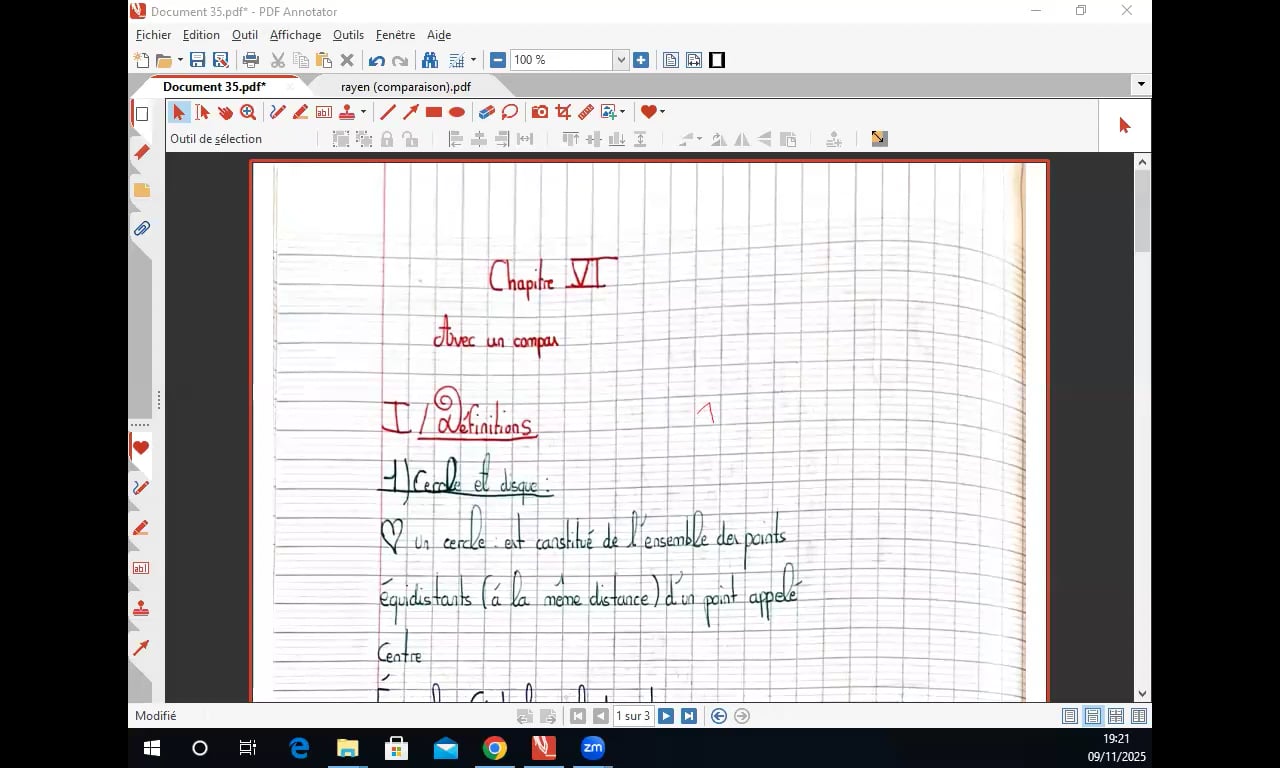 Document 35.pdf* - PDF Annotator
Fichier Edition Outil Affichage Outils Fenêtre Aide
100 %
Document 35.pdf* rayen (comparaison).pdf
Outil de sélection
Chapitre VI
Avec un compas
I / Définitions
1) Cercle et disque :
un cercle : est constitué de l'ensemble des points
équidistants (á la même distance) d'un point appelé
Centre
Modifié
1 sur 3
19:21
09/11/2025